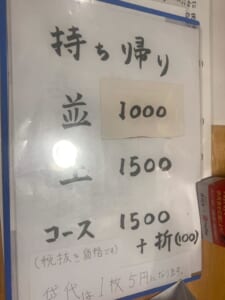 持ち帰り
並 1000
上 1500
コース 1500
(税抜き価格です) + 折(100)
袋代は1枚5円になります。